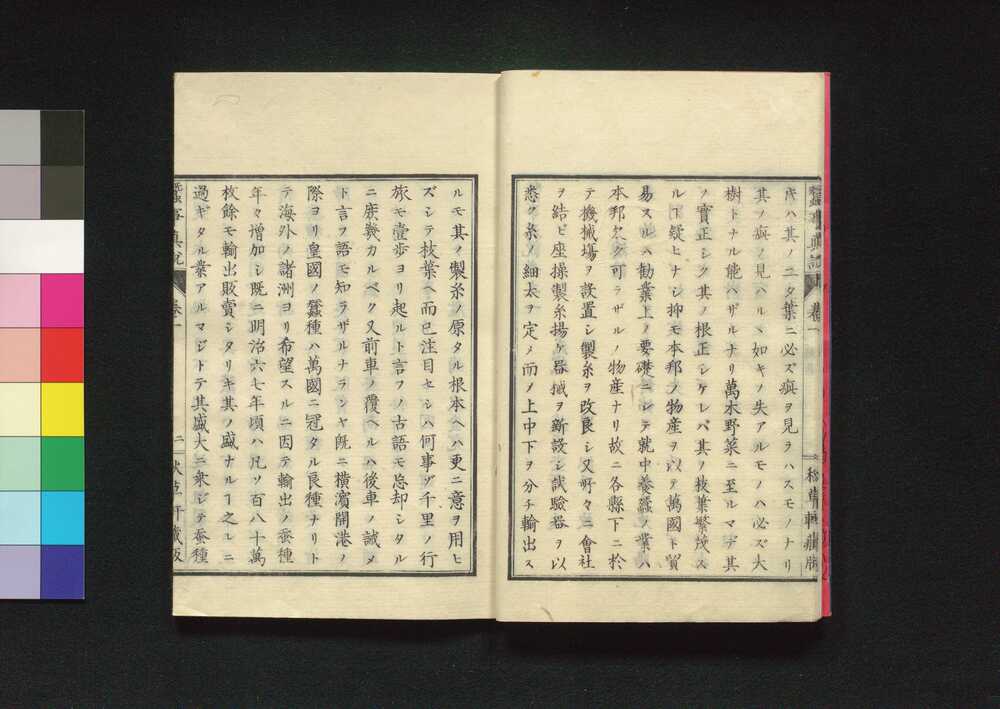 虎ハ其ノ二タ葉ニ必ズ痕ヲ見ラハスモノナリ
其ノ痕ノ見ハルヽ如キノ失アルモノハ必ズ大
樹トナル能ハザルナリ萬木野菜ニ至ルマデ其
ノ實正シク其ノ根正シケレバ其ノ枝葉繁茂ス
ルヿ疑ヒナシ抑モ本邦ノ物産ヲ以テ萬國ト貿
易スルハ勸業上ノ要礎ニシテ就中養蠶ノ業ハ
本邦欠ク可ラザルノ物産ナリ故ニ各縣下ニ於
テ機械塲ヲ設置シ製糸ヲ改良シ又所々ニ會社
ヲ結ビ座操製糸揚ケ器械ヲ新設シ試驗器ヲ以
悉ク糸ノ細太ヲ定メ而メ上中下ヲ分チ輸出ス
ルモ其ノ製糸ノ原タル根本ヘハ更ニ意ヲ用ヒ
ズシテ枝葉ヘ而已注目セシハ何事ゾ千里ノ行
旅モ壹歩ヨリ起ルト言フノ古語モ忘却シタル
ニ庶幾カルベク又前車ノ覆ヘルハ後車ノ誡メ
ト言フ語モ知ラザルナランヤ既ニ横濱開港ノ
際ヨリ皇國ノ蠶種ハ萬國ニ冠タル良種ナリト
テ海外ノ諸洲ヨリ希望スルニ因テ輸出ノ蚕種
年々増加シ既ニ明治六七年頃ハ凡ソ百八十萬
枚餘モ輸出販賣シタリキ其ノ盛ナルヿ之レニ
過ギタル業アルマジトテ其盛大ニ衆ジテ蚕種
卷一
二